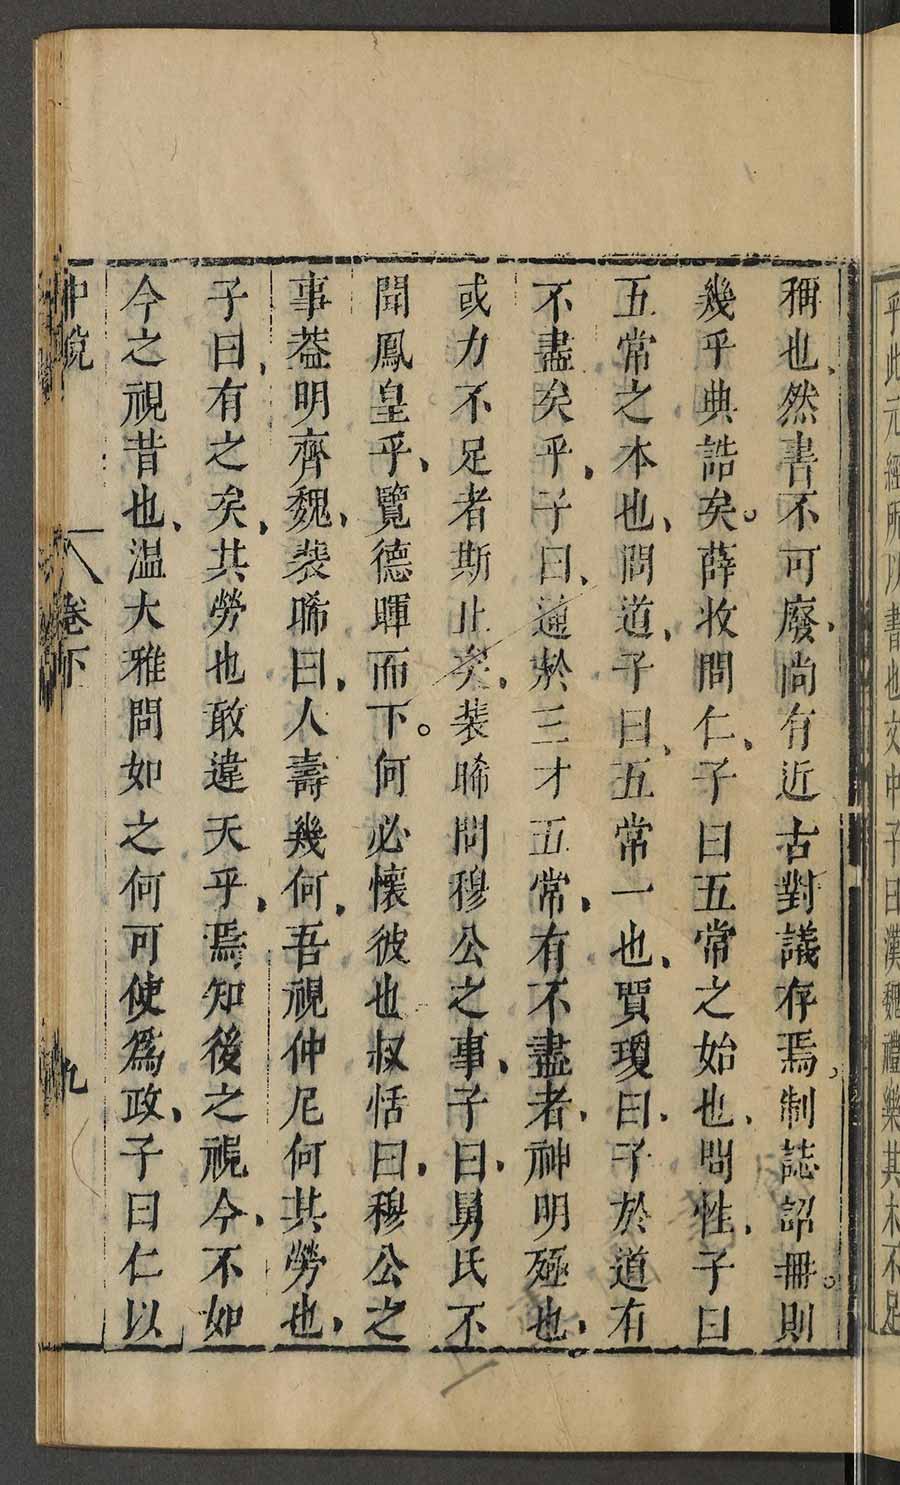 乎此元經所以書也文中子曰漢魏禮樂其末不足
稱也、然書不可廢、尚有近古對議存焉、制誌詔冊。則
幾乎典誥矣。薛收問仁、子曰五常之始也、問性、子曰
五常之本也、問道、子曰、五常一也、賈瓊曰、子於道有
不盡矣乎、子曰、通於三才五常、有不盡者、神明殛也、
或力不足者斯止矣、裴晞問穆公之事、子曰、舅氏不
聞鳳皇乎、覽德暉而下。何必懷彼也叔恬曰、穆公之
事葢明齊魏、裴晞曰、人壽幾何、吾視仲尼何其勞也、
子曰、有之矣、其勞也敢違天乎、焉知後之視今、不如
今之視昔也、温大雅問如之何可使爲政、子曰仁以
中說 卷下 九